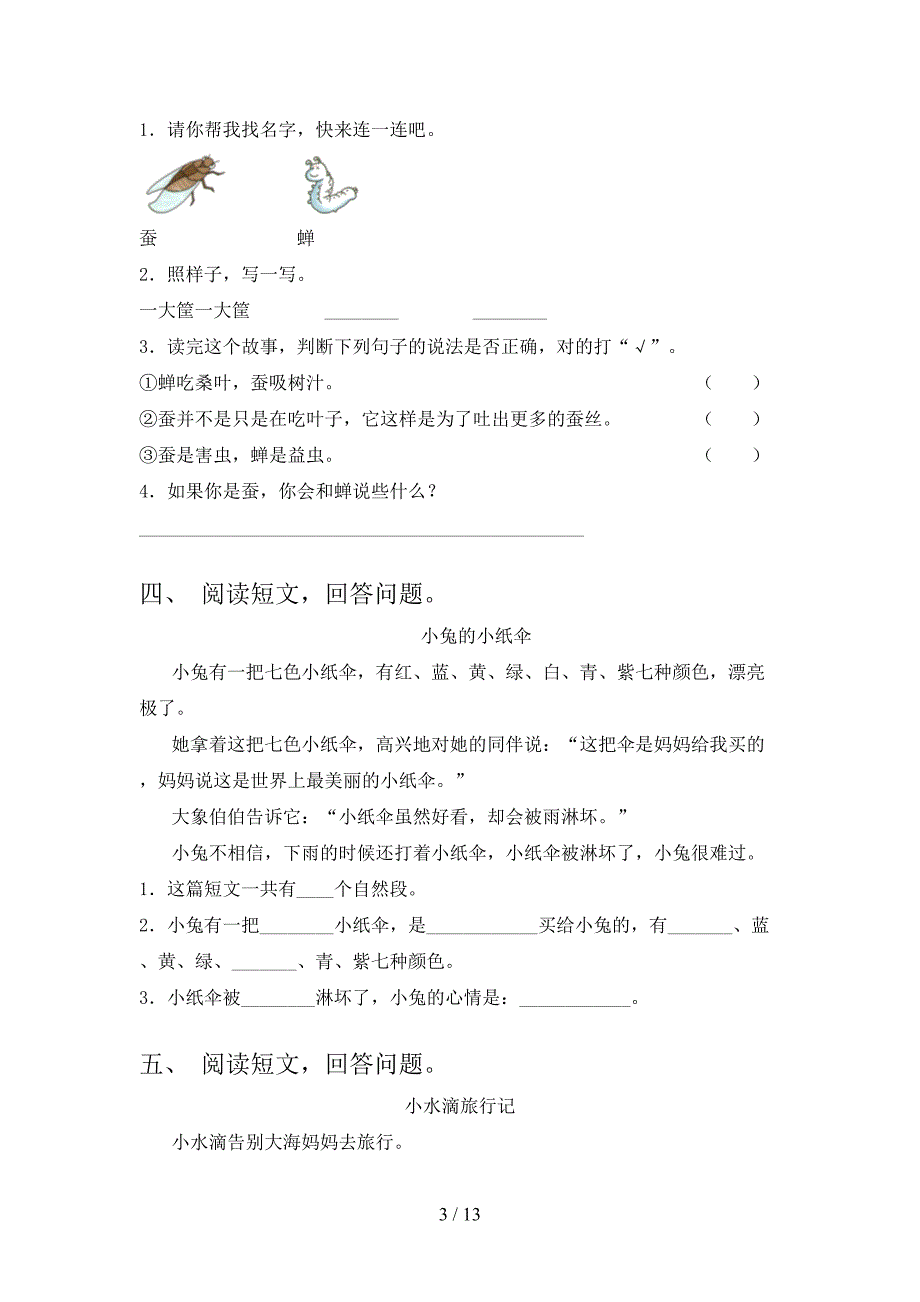 1．请你帮我找名字，快来连一连吧。
蚕 蝉
2．照样子，写一写。
一大筐一大筐 ________ ________
3．读完这个故事，判断下列句子的说法是否正确，对的打“√”。
①蝉吃桑叶，蚕吸树汁。 （ ）
②蚕并不是只是在吃叶子，它这样是为了吐出更多的蚕丝。 （ ）
③蚕是害虫，蝉是益虫。 （ ）
4．如果你是蚕，你会和蝉说些什么？
________________________________________________
四、 阅读短文，回答问题。
小兔的小纸伞
小兔有一把七色小纸伞，有红、蓝、黄、绿、白、青、紫七种颜色，漂亮
极了。
她拿着这把七色小纸伞，高兴地对她的同伴说：“这把伞是妈妈给我买的
，妈妈说这是世界上最美丽的小纸伞。”
大象伯伯告诉它：“小纸伞虽然好看，却会被雨淋坏。”
小兔不相信，下雨的时候还打着小纸伞，小纸伞被淋坏了，小兔很难过。
1．这篇短文一共有____个自然段。
2．小兔有一把________小纸伞，是____________买给小兔的，有_______、蓝
、黄、绿、_______、青、紫七种颜色。
3．小纸伞被________淋坏了，小兔的心情是：____________。
五、 阅读短文，回答问题。
小水滴旅行记
小水滴告别大海妈妈去旅行。
3 / 13